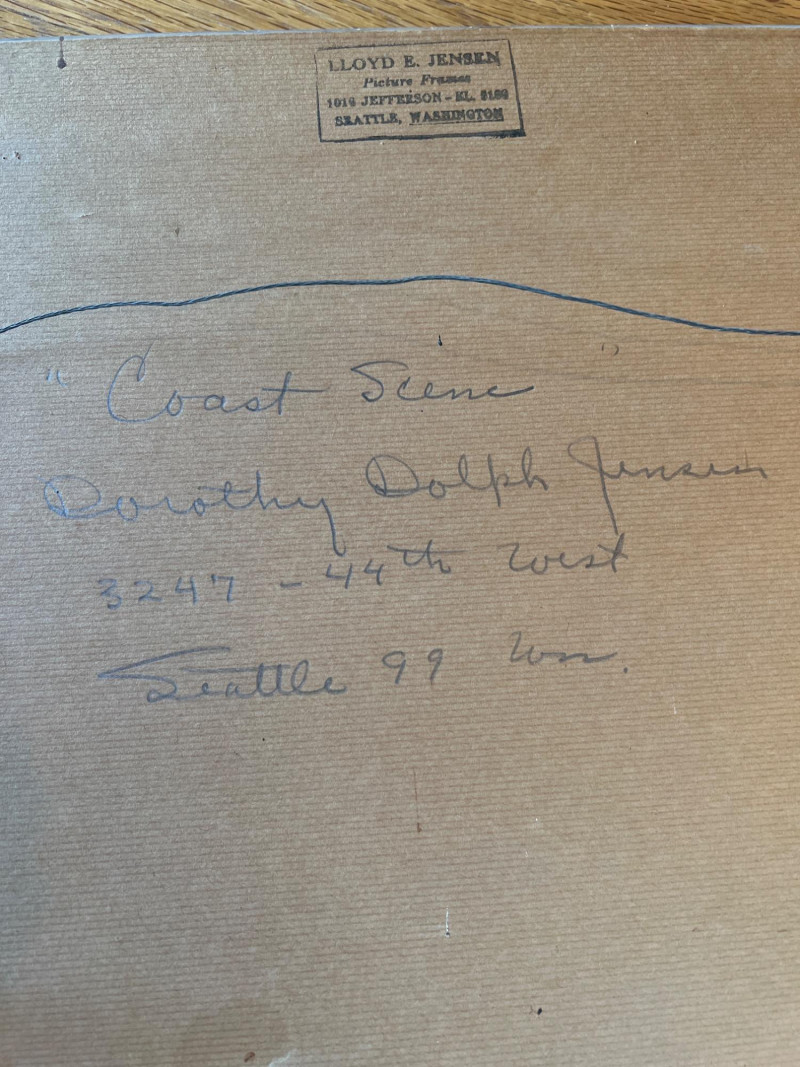 LLOYD E. JENSEN
Picture Frames
1019 JEFFERSON - EL. 8169
SEATTLE, WASHINGTON
"Coast Scene"
Dorothy Dolph Jensen
3247 - 44th West
Seattle 99 Wn.